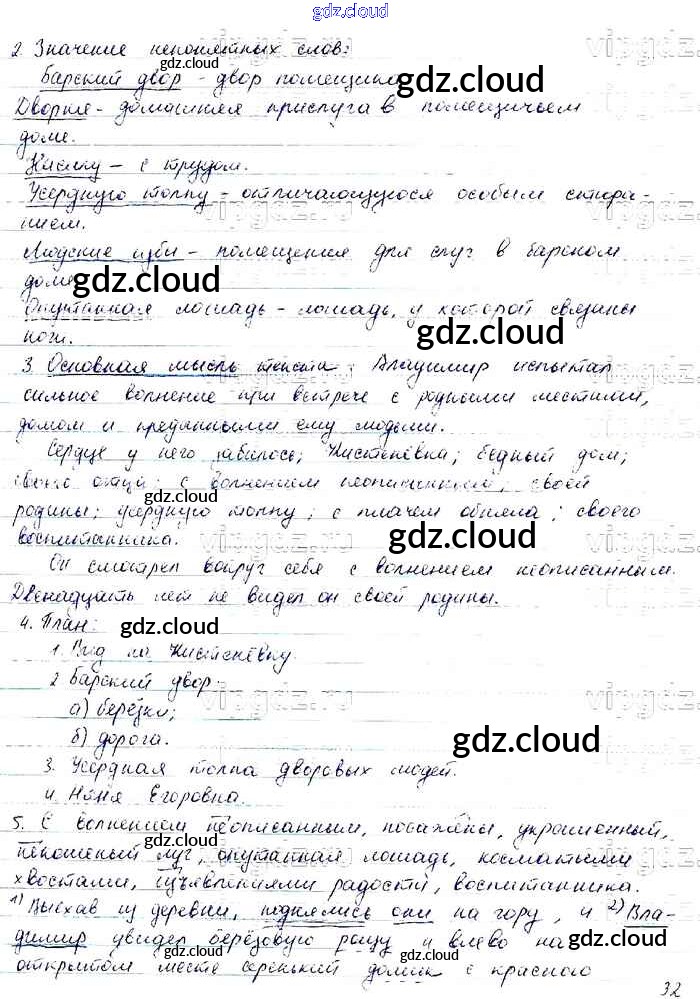 gdz.cloud
2. Значение непонятных слов:
Барский двор - двор помещика
Дворня - домашняя прислуга в помещичьем
доме.
Насилу - с трудом.
Усердную толпу - отличающуюся особым стара-
нием.
Людские избы - помещения для слуг в барском
доме
Опутанная лошадь - лошадь, у которой связаны
ноги.
3. Основная мысль текста: Владимир испытал
сильное волнение при встрече с родными местами,
домом и преданными ему людьми.
Сердце у него забилось; Кистенёвка; бедный дом;
своего отца; с волнением неописанным; своей
родины; усердную толпу; с плачем обняла; своего
воспитанника.
Он смотрел вокруг себя с волнением неописанным.
Двенадцать лет не видел он своей родины.
4. План:
1. Вид на Кистенёвку.
2 Барский двор:
а) берёзки;
б) дорога.
3. Усердная толпа дворовых людей.
4. Няня Егоровна.
5. С волнением неописанным, посажены, украшенный,
некошеный луг, опутанная лошадь, косматыми
хвостами, изъявлениями радости, воспитанника.
1) Выехав из деревни, поднялись они на гору, и 2) Вла-
димир увидел берёзовую рощу и влево на
открытом месте серенький домик с красною
32